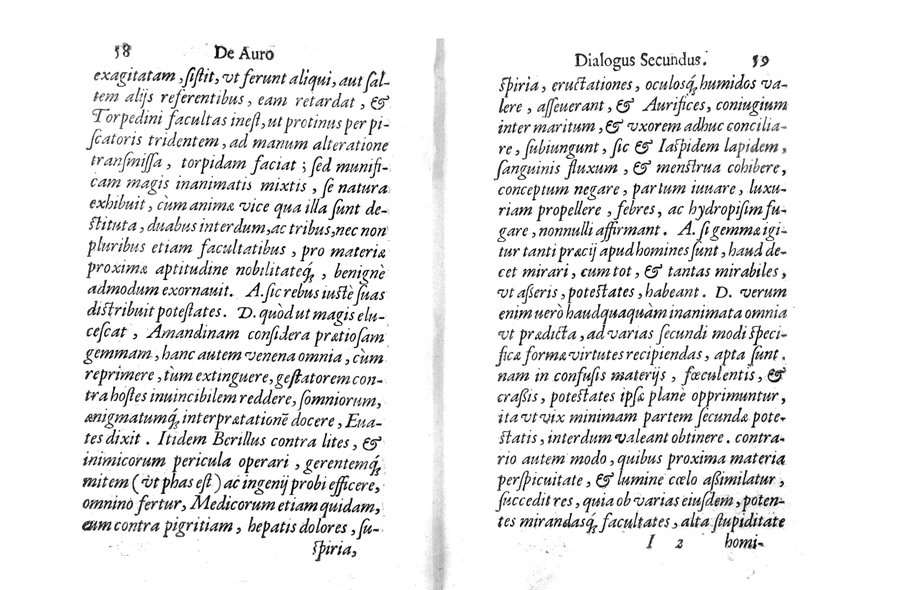 58 De Auro
exagitatam, sistit, vt ferunt aliqui, aut sal-
tem alijs referentibus, eam retardat, &
Torpedini facultas inest, ut protinus per pi-
scatoris tridentem, ad manum alteratione
transmissa, torpidam faciat; sed munifi-
cam magis inanimatis mixtis, se natura
exhibuit, cùm animæ vice qua illa sunt de-
stituta, duabus interdum, ac tribus, nec non
pluribus etiam facultatibus, pro materiæ
proximæ aptitudine nobilitateq́;, benignè
admodum exornauit. A. sic rebus iustè suas
distribuit potestates. D. quòd ut magis elu-
cescat, Amandinam considera prætiosam
gemmam, hanc autem venena omnia, cùm
reprimere, tùm extinguere, gestatorem con-
tra hostes inuincibilem reddere, somniorum,
ænigmatumq́; interpretationē docere, Eua-
tes dixit. Itidem Berillus contra lites, &
inimicorum pericula operari, gerentemq́;
mitem (vt phas est) ac ingenij probi efficere,
omnino fertur, Medicorum etiam quidam,
eum contra pigritiam, hepatis dolores, su-
spiria,
Dialogus Secundus. 59
spiria, eructationes, oculosq́; humidos va-
lere, asseuerant, & Aurifices, coniugium
inter maritum, & vxorem adhuc concilia-
re, subiungunt, sic & Iaspidem lapidem,
sanguinis fluxum, & menstrua cohibere,
conceptum negare, partum iuuare, luxu-
riam propellere, febres, ac hydropisim fu-
gare, nonnulli affirmant. A. si gemmæ igi-
tur tanti præcij apud homines sunt, haud de-
cet mirari, cum tot, & tantas mirabiles,
vt asseris, potestates, habeant. D. verum
enim uerò haudquaquam inanimata omnia
vt prædicta, ad varias secundi modi speci-
ficæ formæ virtutes recipiendas, apta sunt.
nam in confusis materijs, fœculentis, &
crassis, potestates ipsæ planè opprimuntur,
ita vt vix minimam partem secundæ pote-
statis, interdum valeant obtinere. contra-
rio autem modo, quibus proxima materia
perspicuitate, & lumine cœlo assimilatur,
succedit res, quia ob varias eiusdem, poten-
tes mirandasq́; facultates, alta stupiditate
I 2 homi-